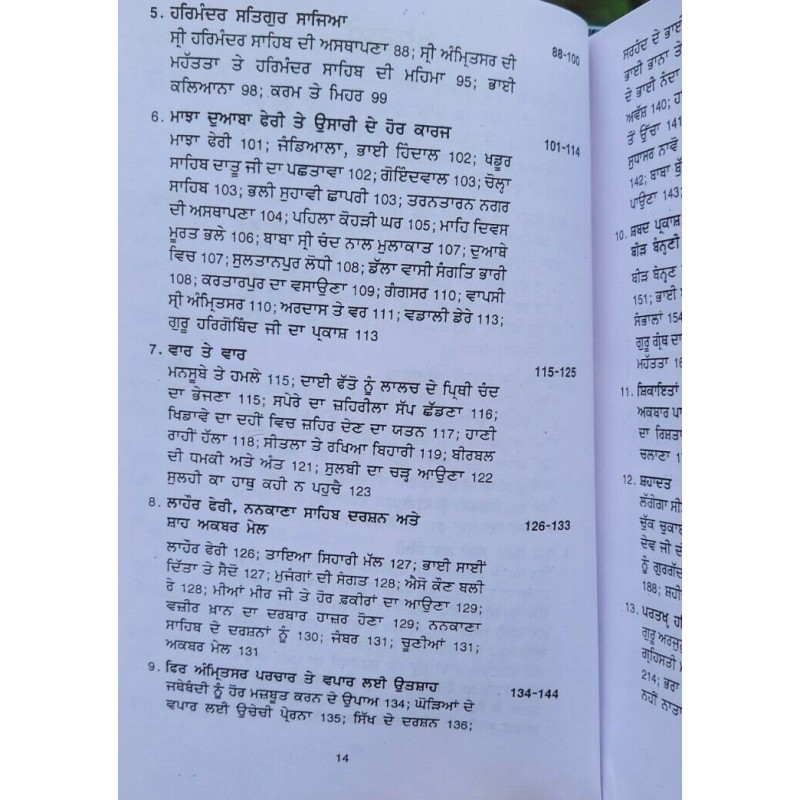 5. ਹਰਿਮੰਦਰ ਸਤਿਗੁਰ ਸਾਜਿਆ 88-100
ਸ੍ਰੀ ਹਰਿਮੰਦਰ ਸਾਹਿਬ ਦੀ ਅਸਥਾਪਣਾ 88; ਸ੍ਰੀ ਅੰਮ੍ਰਿਤਸਰ ਦੀ
ਮਹੱਤਤਾ ਤੇ ਹਰਿਮੰਦਰ ਸਾਹਿਬ ਦੀ ਮਹਿਮਾ 95; ਭਾਈ
ਕਲਿਆਨਾ 98; ਕਰਮ ਤੇ ਮਿਹਰ 99
6. ਮਾਝਾ ਦੁਆਬਾ ਫੇਰੀ ਤੇ ਉਸਾਰੀ ਦੇ ਹੋਰ ਕਾਰਜ 101-114
ਮਾਝਾ ਫੇਰੀ 101; ਜੰਡਿਆਲਾ, ਭਾਈ ਹਿੰਦਾਲ 102; ਖਡੂਰ
ਸਾਹਿਬ ਦਾਤੂ ਜੀ ਦਾ ਪਛਤਾਵਾ 102; ਗੋਇੰਦਵਾਲ 103; ਚੋਲ੍ਹਾ
ਸਾਹਿਬ 103; ਭਲੀ ਸੁਹਾਵੀ ਛਾਪਰੀ 103; ਤਰਨਤਾਰਨ ਨਗਰ
ਦੀ ਅਸਥਾਪਣਾ 104; ਪਹਿਲਾ ਕੋਹੜੀ ਘਰ 105; ਮਾਹਿ ਦਿਵਸ
ਮੂਰਤ ਭਲੇ 106; ਬਾਬਾ ਸ੍ਰੀ ਚੰਦ ਨਾਲ ਮੁਲਾਕਾਤ 107; ਦੁਆਬੇ
ਵਿਚ 107; ਸੁਲਤਾਨਪੁਰ ਲੋਧੀ 108; ਡੱਲਾ ਵਾਸੀ ਸੰਗਤਿ ਭਾਰੀ
108; ਕਰਤਾਰਪੁਰ ਦਾ ਵਸਾਉਣਾ 109; ਗੰਗਸਰ 110; ਵਾਪਸੀ
ਸ੍ਰੀ ਅੰਮ੍ਰਿਤਸਰ 110; ਅਰਦਾਸ ਤੇ ਵਰ 111; ਵਡਾਲੀ ਡੇਰੇ 113;
ਗੁਰੂ ਹਰਿਗੋਬਿੰਦ ਜੀ ਦਾ ਪ੍ਰਕਾਸ਼ 113
7. ਵਾਰ ਤੇ ਵਾਰ 115-125
ਮਨਸੂਬੇ ਤੇ ਹਮਲੇ 115; ਦਾਈ ਫੱਤੋ ਨੂੰ ਲਾਲਚ ਦੇ ਪ੍ਰਿਥੀ ਚੰਦ
ਦਾ ਭੇਜਣਾ 115; ਸਪੇਰੇ ਦਾ ਜ਼ਹਿਰੀਲਾ ਸੱਪ ਛੱਡਣਾ 116;
ਖਿਡਾਵੇ ਦਾ ਦਹੀਂ ਵਿਚ ਜ਼ਹਿਰ ਦੇਣ ਦਾ ਯਤਨ 117; ਹਾਣੀ
ਰਾਹੀਂ ਹੱਲਾ 118; ਸੀਤਲਾ ਤੇ ਰਖਿਆ ਬਿਹਾਰੀ 119; ਬੀਰਬਲ
ਦੀ ਧਮਕੀ ਅਤੇ ਅੰਤ 121; ਸੁਲਬੀ ਦਾ ਚੜ੍ਹ ਆਉਣਾ 122
ਸੁਲਹੀ ਕਾ ਹਾਥੁ ਕਹੀ ਨ ਪਹੁਚੈ 123
8. ਲਾਹੌਰ ਫੇਰੀ, ਨਨਕਾਣਾ ਸਾਹਿਬ ਦਰਸ਼ਨ ਅਤੇ
ਸ਼ਾਹ ਅਕਬਰ ਮੇਲ 126-133
ਲਾਹੌਰ ਫੇਰੀ 126; ਤਾਇਆ ਸਿਹਾਰੀ ਮੱਲ 127; ਭਾਈ ਸਾਈਂ
ਦਿੱਤਾ ਤੇ ਸੈਦੋ 127; ਮੁਜੰਗਾਂ ਦੀ ਸੰਗਤ 128; ਐਸੋ ਕੌਣ ਬਲੀ
ਰੇ 128; ਮੀਆਂ ਮੀਰ ਜੀ ਤੇ ਹੋਰ ਫ਼ਕੀਰਾਂ ਦਾ ਆਉਣਾ 129;
ਵਜ਼ੀਰ ਖ਼ਾਨ ਦਾ ਦਰਬਾਰ ਹਾਜ਼ਰ ਹੋਣਾ 129; ਨਨਕਾਣਾ
ਸਾਹਿਬ ਦੇ ਦਰਸ਼ਨਾਂ ਨੂੰ 130; ਜੰਬਰ 131; ਚੂਣੀਆਂ 131;
ਅਕਬਰ ਮੇਲ 131
9. ਫਿਰ ਅੰਮ੍ਰਿਤਸਰ ਪਰਚਾਰ ਤੇ ਵਪਾਰ ਲਈ ਉਤਸ਼ਾਹ 134-144
ਜਥੇਬੰਦੀ ਨੂੰ ਹੋਰ ਮਜ਼ਬੂਤ ਕਰਨ ਦੇ ਉਪਾਅ 134; ਘੋੜਿਆਂ ਦੇ
ਵਪਾਰ ਲਈ ਉਚੇਚੀ ਪ੍ਰੇਰਨਾ 135; ਸਿੱਖ ਦੇ ਦਰਸ਼ਨ 136;
14
ਸਰਹੰਦ ਦੇ ਭਾਈ
ਭਾਈ ਭਾਨਾ ਤੇ
ਦੇ ਭਾਈ ਨੰਦਾ
ਅਵੱਸ਼ 140;
ਤੋਂ ਉੱਚਾ 141
ਸੁਧਾਸਰ ਨਾਵੋ
142; ਬਾਬਾ
ਪਾਉਣਾ 143;
10. ਸ਼ਬਦ ਪ੍ਰਕਾਸ਼
ਬੀੜ ਬੰਨ੍ਹਣੀ
ਬੀੜ ਬੰਨ੍ਹਣ
151; ਭਾਈ
ਸੰਭਾਲਾਂ 154
ਗੁਰੂ ਗ੍ਰੰਥ ਦਾ
ਮਹੱਤਤਾ
11. ਸ਼ਿਕਾਇਤਾਂ
ਅਕਬਾਰ
ਦਾ ਰਿਸ਼ਤਾ
ਚਲਾਣਾ
12. ਸ਼ਹਾਦਤ
ਲੱਗੇਗਾ
ਚੁੱਕ ਚੁਕਾ
ਦੇਵ ਜੀ ਦੀ
ਨੂੰ ਗੁਰਗੱਦ
188; ਸ਼ਹੀ
13. ਪਰਤਖ੍ਹ
ਗੁਰੂ ਅਰਜੁਨ
ਗ੍ਰਹਿਸਤੀ
214; ਭਰਾ
ਨਹੀਂ ਨਾਤਾ